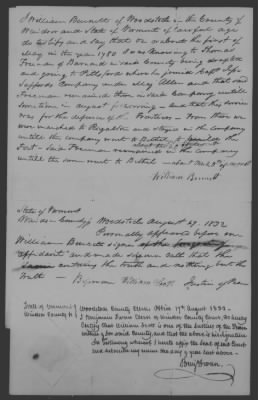 I William Bennett of Woodstock in the County of
Windsor and State of Vermont of lawful age
do testify and say that on or about the first of
May in the year 1780 I was knowing to Thomas
Freeman of Barnard in said County being drafted
and going to Pittsford where he joined Capt
Saffords Company under Ebenr Allen and that said
Freeman remained there in said Company untill
sometime in august following and that his service
was for the defence of the Frontiers - From there we
was marched to Royalton and stayed in the company
untill the company went to Bethel to the
Fort - said Freeman remained in the company
untill the same went to Bethel
William Bennett
State of Vermont
Windsor County Woodstock August 27. 1832
Personally appeared before me
William Bennett signer of the foregoing
affidavit and made solemn oath that the
same contains the truth and nothing but the
truth - Before me William Justice of Peace
State of Vermont
Windsor County Woodstock County Clerks Office 29th August 1832
I Benjamin Swan Clerk of Windsor County Court, do hereby
Certify that William is one of the Justices of the Peace
within & for said County, and that the above is his signature
In testimony whereof I hereto affix the Seal of said Court
and subscribe my name the day & year last above -
Benj Swan